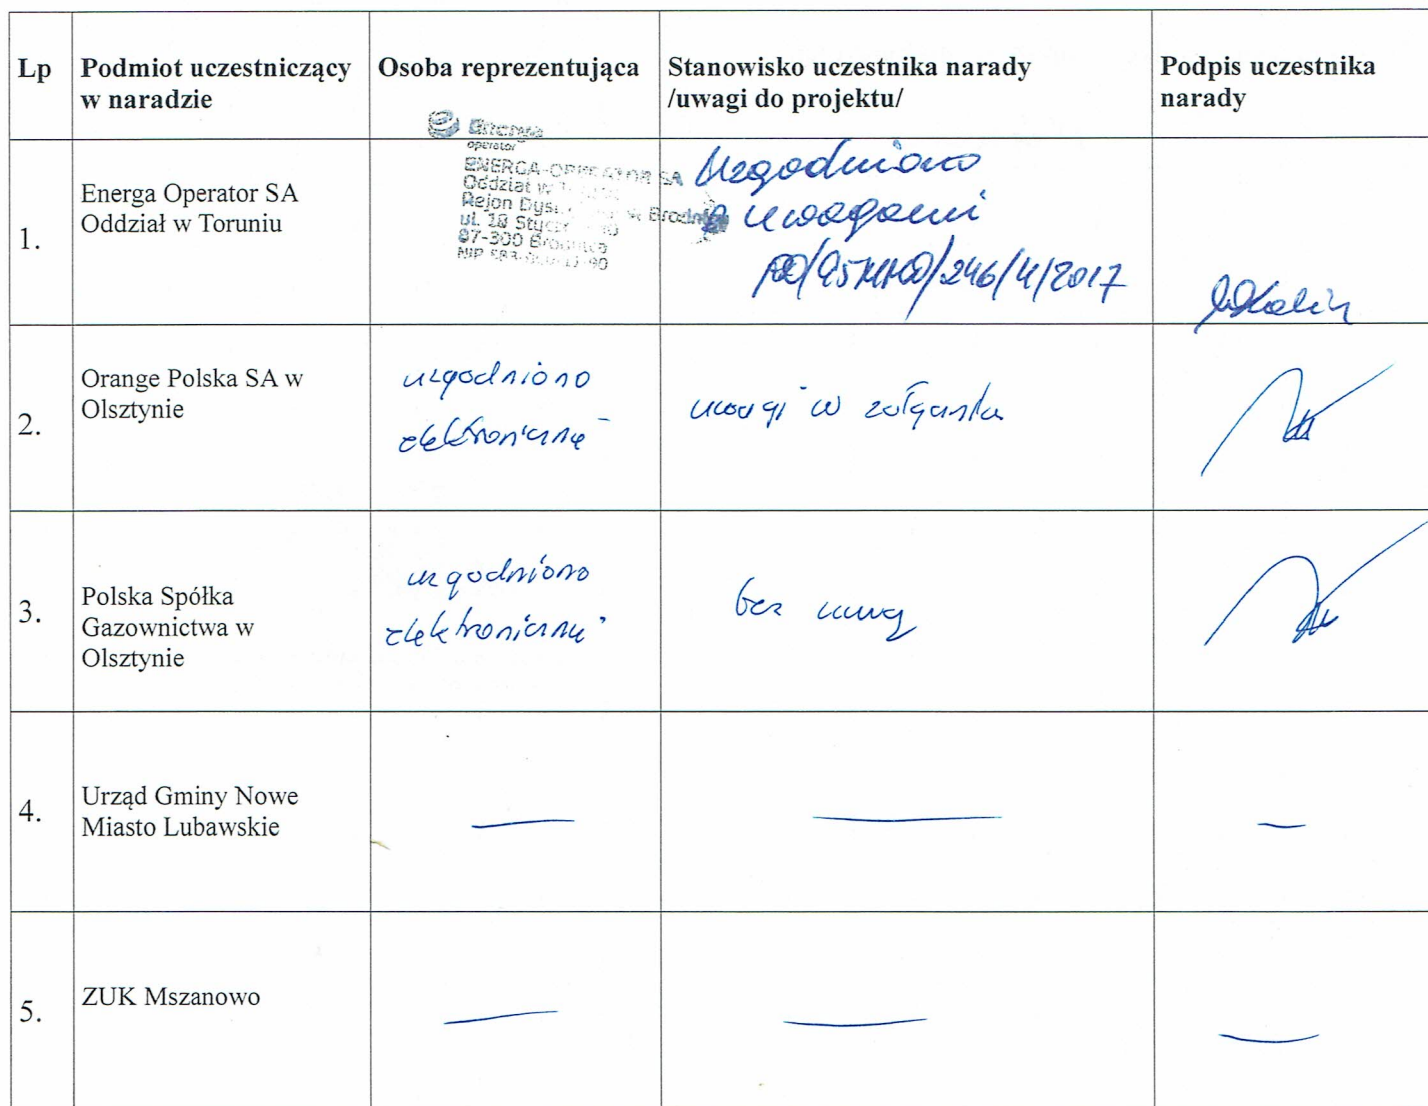 Lp
Podmiot uczestniczący
w naradzie
Osoba reprezentująca
Stanowisko uczestnika narady
/uwagi do projektu/
Podpis uczestnika
narady
1.
Energa Operator SA
Oddział w Toruniu
Energa
operator
ENERGA-OPERATOR SA
Oddział w
Rejon Dys. w Brodnicy
ul. 18 Stycz
87-300 Brodnica
NIP 583-
Uzgodniono
z uwagami
/246/4/2017
2.
Orange Polska SA w
Olsztynie
uzgodniono
elektronicznie
uwagi w załączniku
3.
Polska Spółka
Gazownictwa w
Olsztynie
uzgodniono
elektronicznie
bez uwag
4.
Urząd Gminy Nowe
Miasto Lubawskie
5.
ZUK Mszanowo